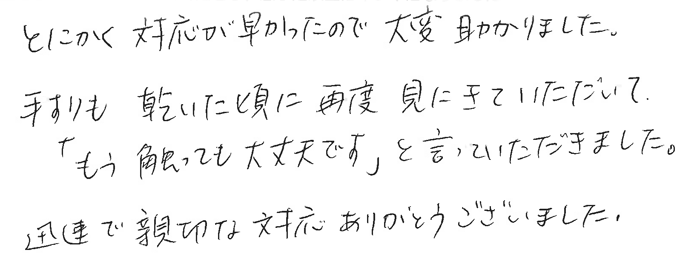 とにかく対応が早かったので大変助かりました。
手すりも乾いた頃に再度見にきていただいて、
「もう触っても大丈夫です」と言っていただきました。
迅速で親切な対応ありがとうございました。